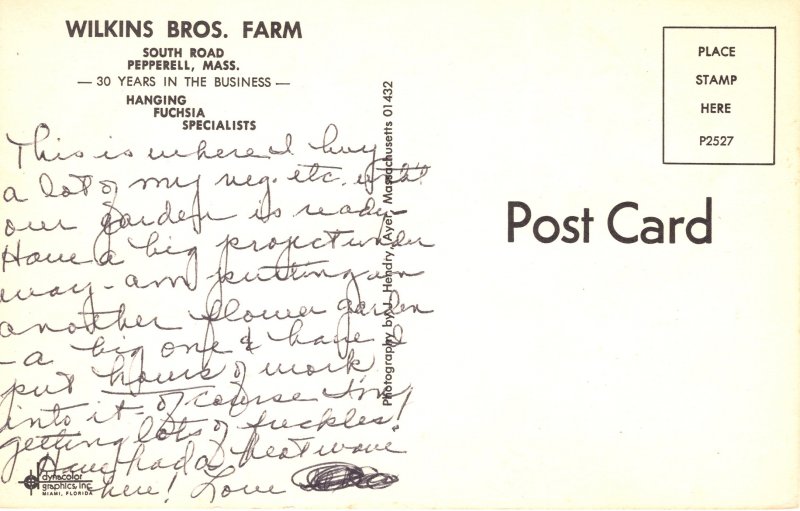 WILKINS BROS. FARM
SOUTH ROAD
PEPPERELL, MASS.
— 30 YEARS IN THE BUSINESS —
HANGING
FUCHSIA
SPECIALISTS
This is where I buy
a lot of my veg. etc. until
our garden is ready
Have a big project under
way - am putting in
another flower garden
- a big one & have I
put hours of work
into it - of course I'm
getting lots of freckles!
Have had a heat wave
here! Love
dynacolor
graphics, inc.
MIAMI, FLORIDA
Photography by J. Hendry, Ayer, Massachusetts 01432
PLACE
STAMP
HERE
P2527
Post Card